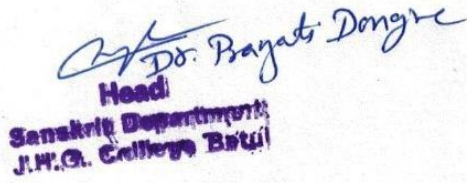 Dr. Pragati Dongre
Head
Sanskrit Department
J.H.G. College Betul